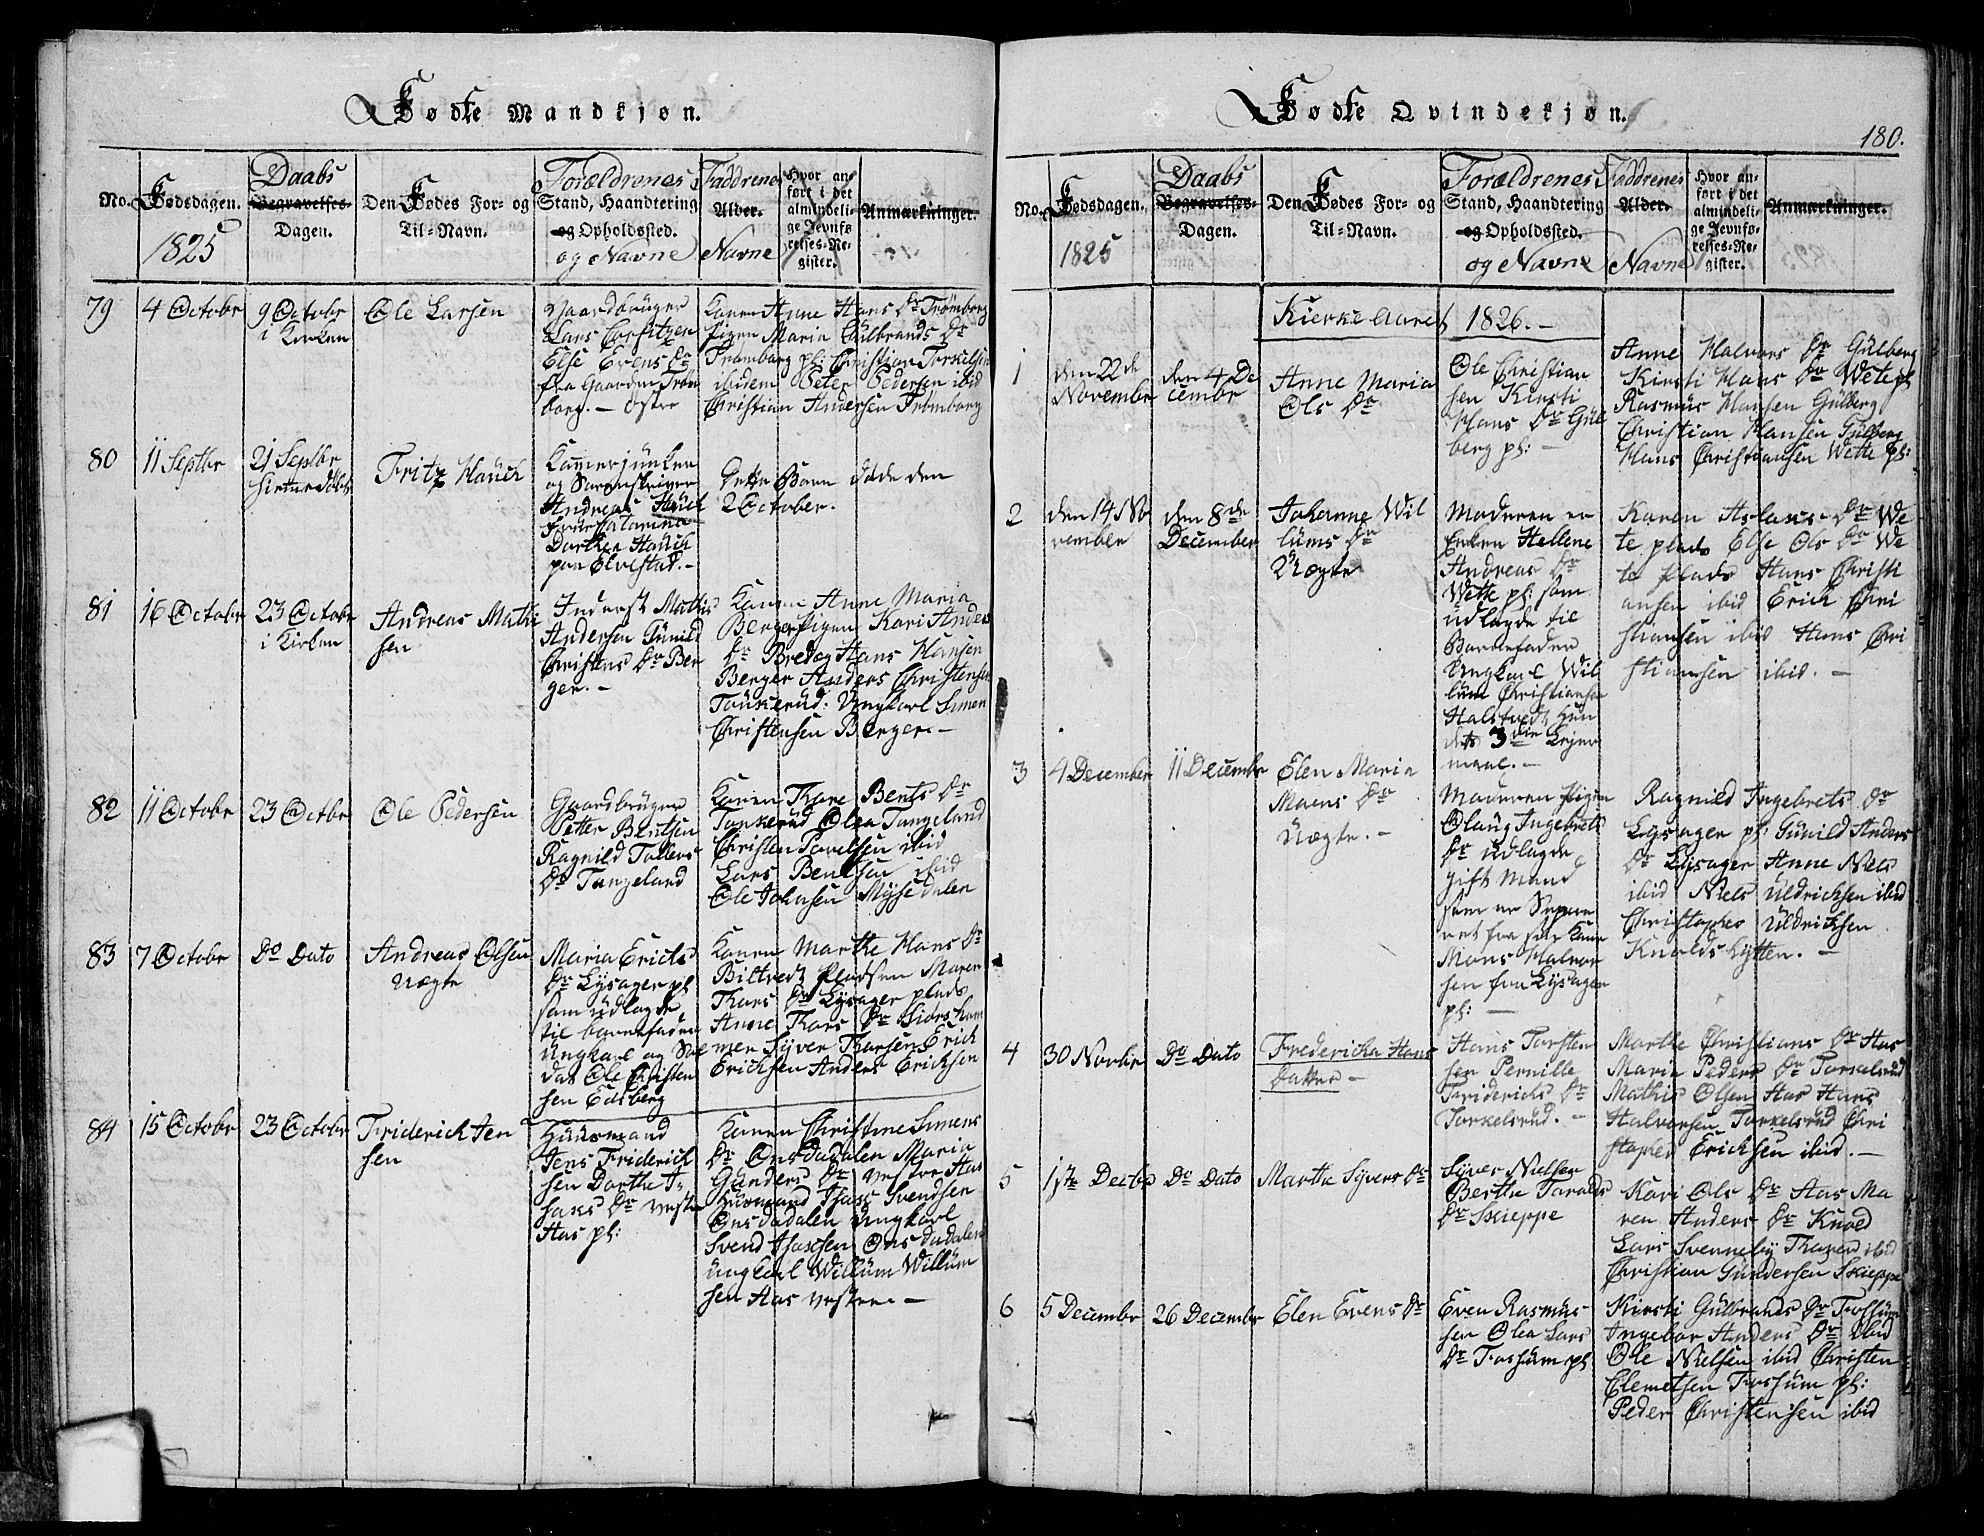 Fødte Mandkjøn.
No.
Fødsdagen.
1825
Daabs
Begravelses-
Dagen.
Den Fødes For- og
Til-Navn.
Forældrenes
Stand, Haandtering
og Opholdssted.
og Navne
Faddrenes
Alder.
Navne
Hvor an-
ført i det
almindeli-
ge Jevnfø-
relses-Re-
gister.
Anmærkninger.
79
4 Octobr
9 Octobr
i Kirken
Ole Larsen
Gaardbruger
Lars Corfitzen
Else Evens Dr
fra Gaarden Trøm
borg. - østre
Konen Anne Hans Dr Trømborg
pigen Maria Gulbrands Dr
Tromborg pl: Christian Torkelsen
ibidem Peter Pedersen ibid
Christian Andersen Trømborg
80
11 Septbr
21 Septbr
Fritz Hauch
Kamerjunker
og Sorenskriver
Andreas Hauch
Dorthea Hauch
paa Elvestad. -
Dette Barn døde den
2 October.
81
16 Octobr
23 Octobr
i Kirken
Andreas Mathi
sen
Inderst Mathis
Andersen Gunild
Christens Dr Ber
ger. -
Konen Anne Maria
Berger pigen Kari Anders
Dr Bredog Hans Hansen
Berger Anders Christensen
Tonkerud. Ungkarl Simen
Christensen Berger. -
82
11 Octobr
23 Octbr
Ole Pedersen
Gaardbruger
Petter Bentsen
Ragnild Tollers
Dr Tangeland
Konen Thore Bents Dr
Tonkerud Olea Tangeland
Christen Povelsen ibid
Lars Bentsen ibid
Ole Johnsen Mysedalen
83
7 Octobr
Do Dato
Andreas Olsen
Uægte
Maria Erichs
Dr Lysager pl
som udlagde
til barnefader
Ungkarl og Sol
dat Ole Christen
sen Edsberg
Konen Marthe Hans Dr
Biltvedt pladsen Maren
Thors Dr Lysager plads
Anne Thors Dr Siorsham
mer Syver Thorsen Erich
Erichsen Anders Erichsen
84
15 Octobr
23 Octobr
Friderich Jen
sen
Huusmand
Jens Friderich
sen Dorthe I-
saks Dr vestre
Aas pl:
Konen Christine Simens
Dr Onsdadalen Maria
Gunders Dr vestre Aas
Huusmand Isaac Svendsen
Onsdadalen Ungkarl
Svend Isacsen Onsdadalen
Ungkarl Willum Willum
sen Aas vestre. -
Fødte Qvindekjøn.
180.
No.
Fødsdagen.
1825
Daabs
Begravelses-
Dagen.
Den Fødes For- og
Til-Navn.
Forældrenes
Stand, Haandtering
og Opholdssted.
og Navne
Faddrenes
Alder.
Navne
Hvor an-
ført i det
almindeli-
ge Jevnfø-
relses-Re-
gister.
Anmærkninger.
Kierke Aaret 1826. -
1
den 22de
November
den 4 De
cembr
Anne Maria
Ols Dr
Ole Christian
sen Kirsti
Hans Dr Gul
berg pl: -
Anne Halvors Dr Gulberg
Kirsti Hans Dr Wete pl
Rasmus Hansen Gulberg
Christian Hansen Gulberg
Hans Christiansen Wette pl:
2
den 14 No
vember
den 8de
December
Johanne Wil
lums Dr
Uægte
Moderen er
Enken Hellene
Andreas Dr
Wette pl: som
udlagde til
Barnefader
Ungkarl Wil
lum Christiansen
Halstvedt hun
dets 3die Leyer
maal. -
Karen Aslaks Dr We
te plads Else Ols Dr We
te plads Hans Christi
ansen ibid Erich Chri
stiansen ibid Hans Chri
stiansen ibid. -
3
4 December
11 Decembr
Elen Maria
Moens Dr
Uægte. -
Moderen pigen
Olaug Ingebrets
Dr udlagde
gift Mand
som er Separe
ret fra sin Kone
Mons Halvor
sen fra Lysager
pl: -
Ragnild Ingebrets Dr
Lysager pl: Gunild Anders
Dr Lysager Anne Niels
ibid Niels Uldrichsen ibid
Christopher Uldrichsen
Knolds hytten. -
4
30 Novbr
Do Dato
Fredericka Hans
Datter -
Hans Torsten
sen Pernille
Friderichs Dr
Torkelsrud. -
Marthe Christians Dr Aas
Maria Peders Dr Torkelsrud
Mathis Olsen Aas Hans
Halvorsen Torkelsrud Chri
stopher Erichsen ibid. -
5
1ste Decbr
Do Dato
Marthe Syvers Dr
Syver Nielsen
Berthe Taralds
Dr Skieppe
Kari Ols Dr Aas Ma
ren Anders Dr Knold
Lars Svenneby Thoren ibid
Christian Gundersen Skieppe
6
5 December
26 December
Elen Evens Dr
Even Rasmus
sen Olea Lars
Dr Fossum pl
Kirsti Gulbrands Dr Fossum
Ingebor Anders Dr ibid
Ole Nielsen ibid Christen
Clemetsen Fossum pl:
Peder Christensen ibid